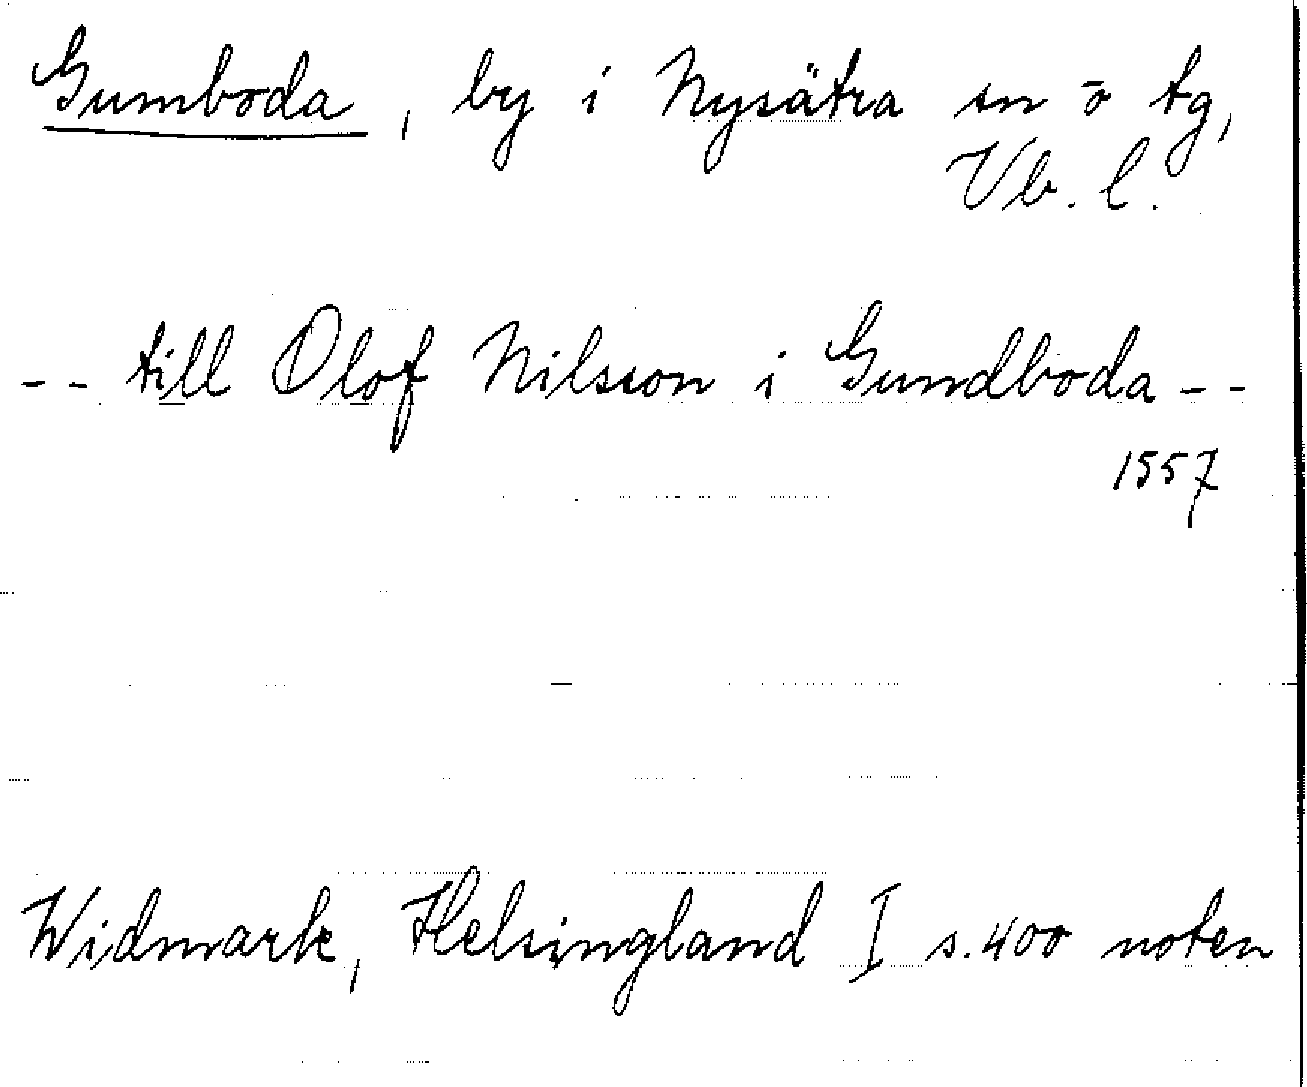 Gumboda, by i Nysätra sn o tg,
Vb. l.
-- till Olof Nilsson i Gundboda --
1557
Widmark, Helsingland I s. 400 noten